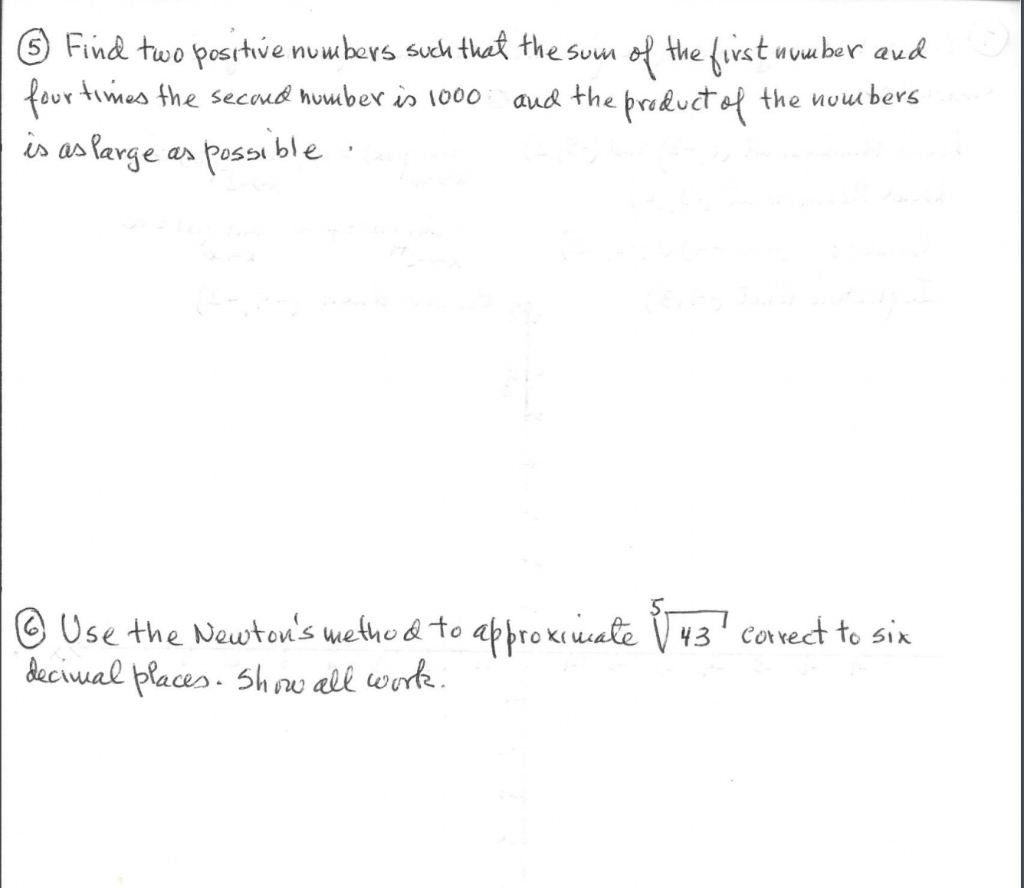 ⑤ Find two positive numbers such that the sum of the first number and
four times the second number is 1000 and the product of the numbers
is as large as possible.
⑥ Use the Newton's method to approximate ⁵√43 correct to six
decimal places. Show all work.